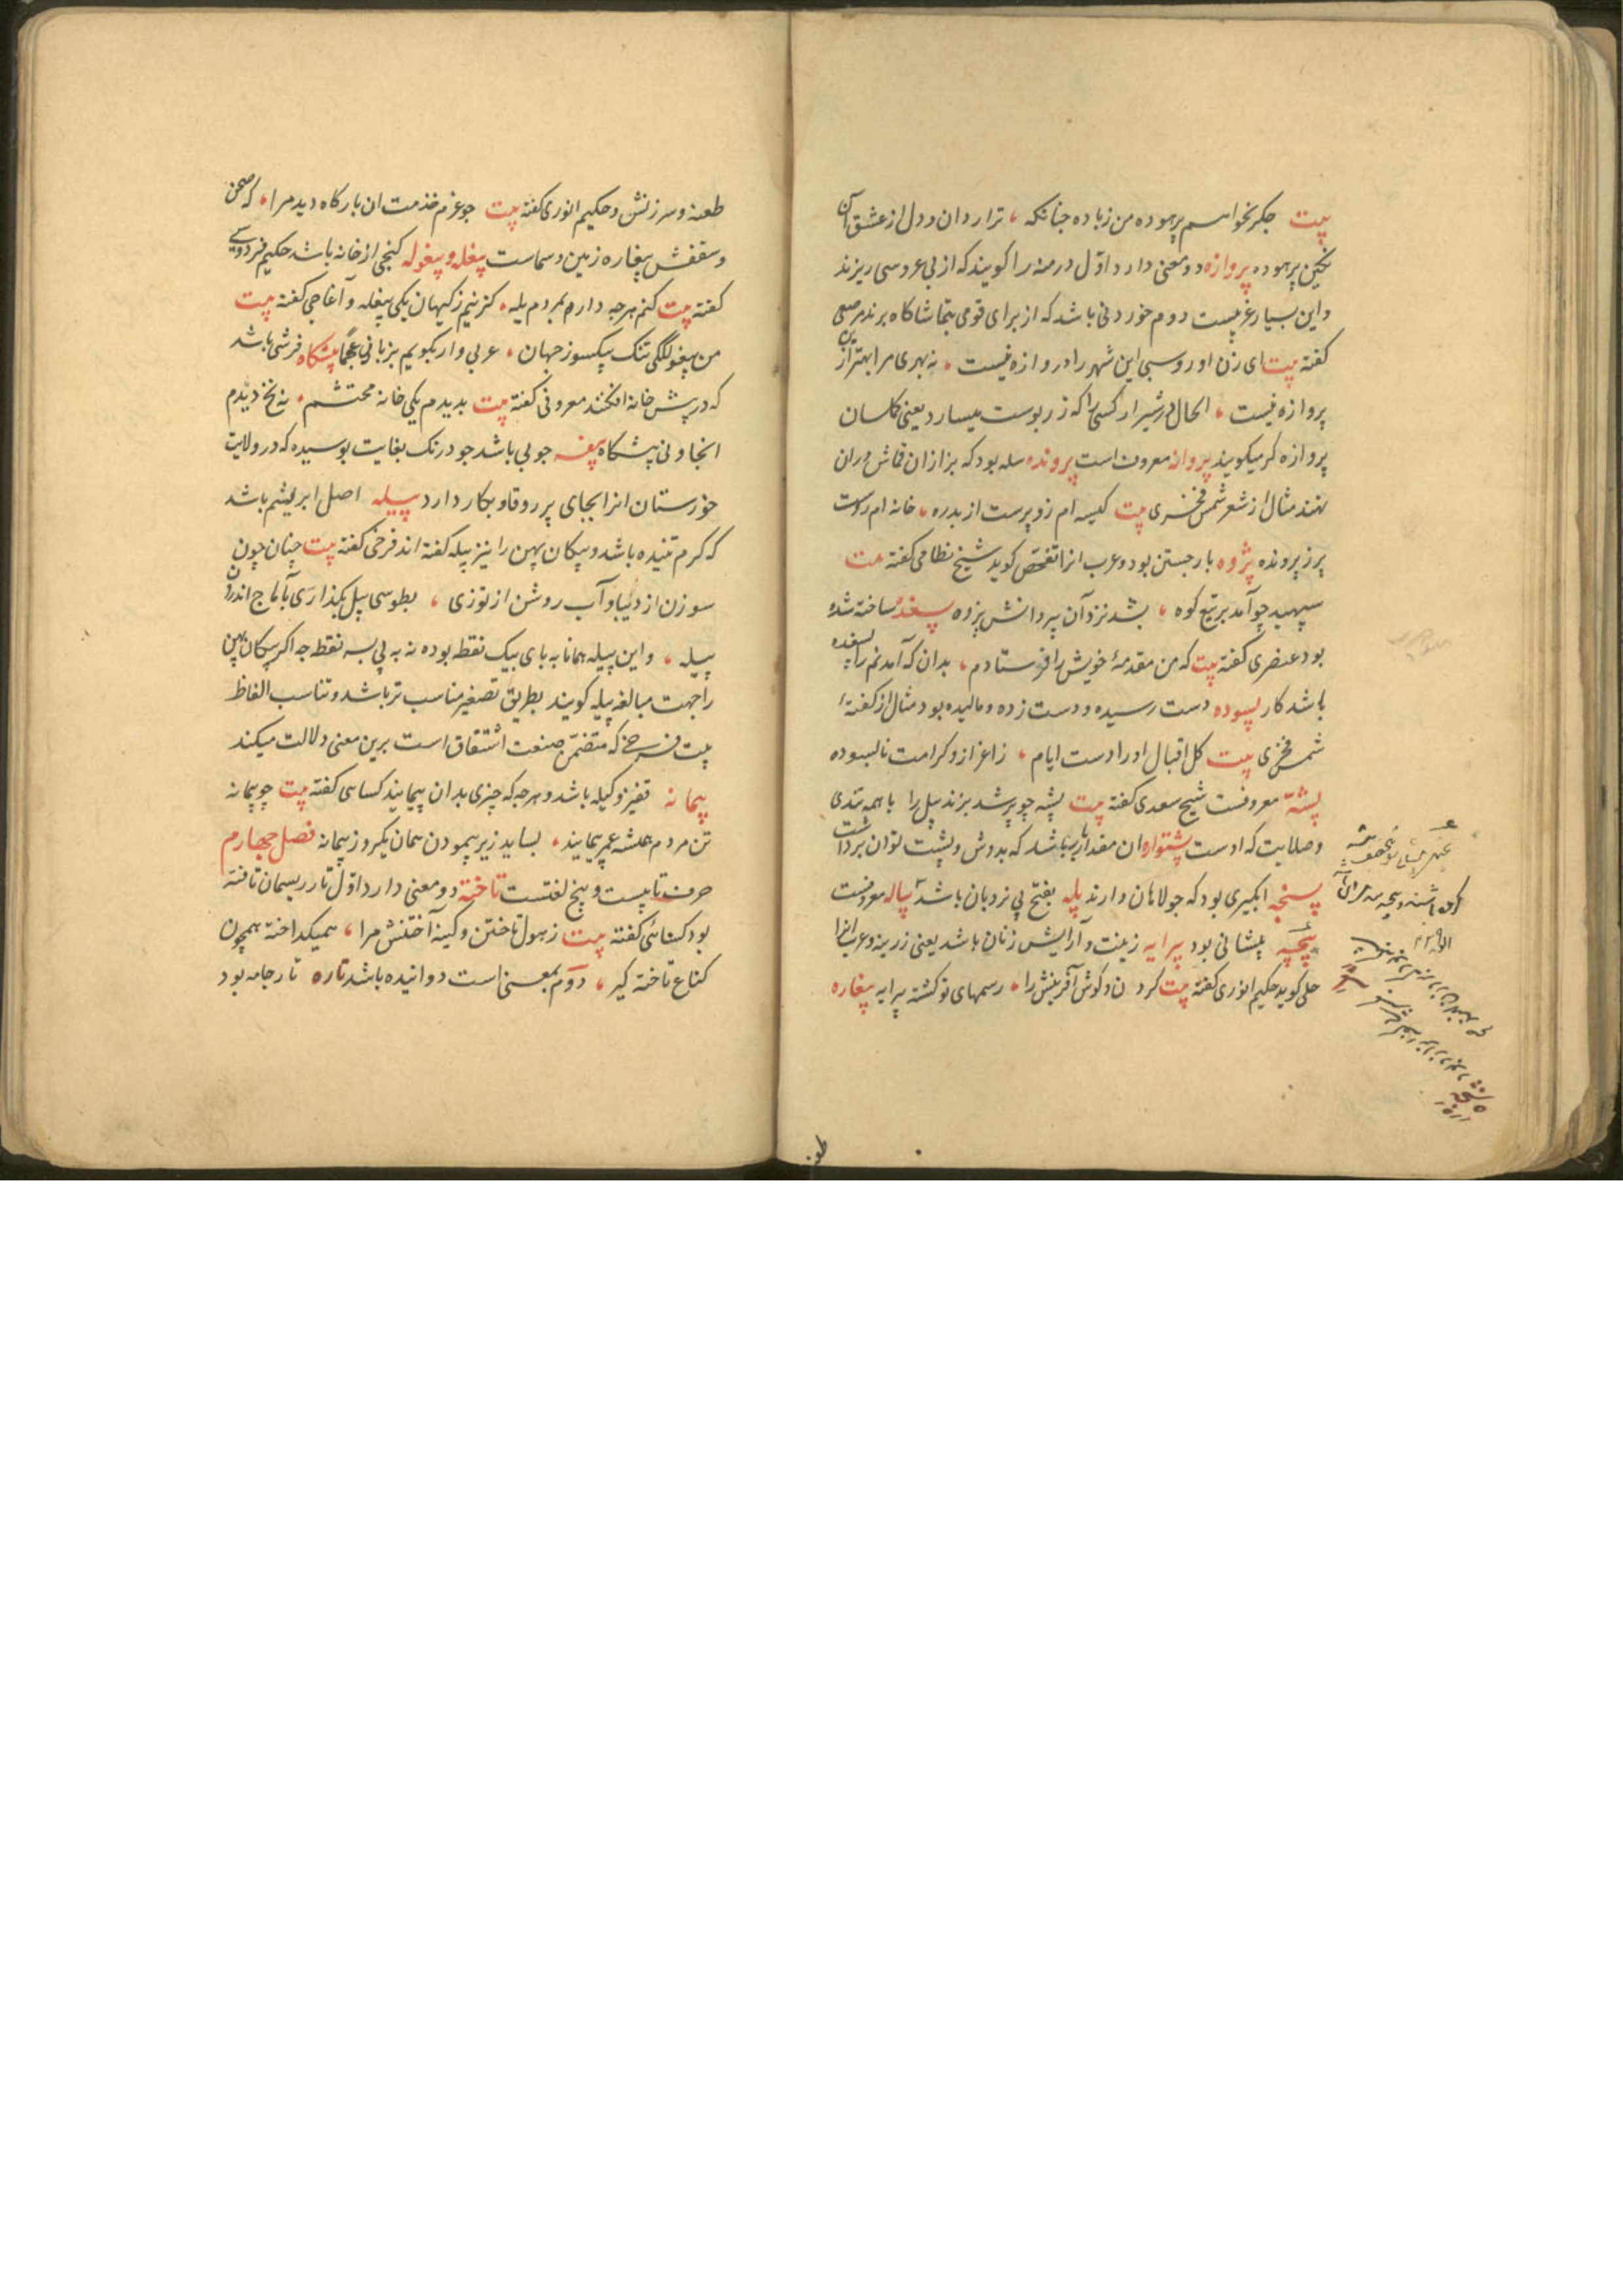 بیت جگر بخواهم پرهوده من زباده جنانکه ، ترا ردان و دل از عشق آن
نکین پرهوده پروازه دو معنی دارد اوّل درمنه را کویند که از پی عروسی ریزند
و این بسیار غریبست دوم خوردنی باشد که از برای قومی بتماشاکاه برند
کفته بیت ای زن او روسبی این شهر را دروازه نیست ، نه بهری مرا بهتر از
پروازه نیست ، الحال در شیراز کسی را که زر بوست میسازد یعنی
پروازه کر میکویند پروانه معروف است پرونده سله بود که بزازان قماش در ان
نهند مثال از شعر شمس فخری بیت کیسه ام زو پرست از بدره ، خانه ام
پر ز پرونده پژوه باز جستن بود و عرب انرا تفحّص کوید شیخ نظامی کفته بیت
سپهبد چو آمد بر تیغ کوه ، بشد نزد آن پیر دانش پژوه پسغده ساخته شده
بود عنصری کفته بیت که من مقدمهٔ خویش را فرستادم ، بدان که آمدنم را پسغده
باشد کار پسوده دست رسیده و دست زده و مالیده بود مثال از کفتهٔ
شمس فخری بیت کل اقبال او را دست ایام ، ز اعزاز و کرامت نابسوده
پشّه معروفست شیخ سعدی کفته بیت پشه چو پر شد بزند پیل را با همه تندی
و صلابت که اوست پشتواره ان مقدار بار باشد که بدوش و پشت توان برداشت
پسنجه ابکیری بود که جولاهان دارند پله بفتح پی نردبان باشد پیاله معروفست
پیچه پیشانی بود پیرایه زینت و آرایش زنان باشد یعنی زرینه و عرب انرا
حلی کوید حکیم انوری کفته بیت کردن و کوش آفرینش را ، رسمهای تو کشته پیرایه پیغاره
طعنه
طعنه و سرزنش و حکیم انوری کفته بیت جو عزم خذمت ان بارکاه دید مرا ، که صحن
و سقفش پیغاره زمین و سماست پیغله و پیغوله کنجی از خانه باشد حکیم فردوسی
کفته بیت کنم هرجه دارم بمردم یله ، کزینم ز کیهان یکی پیغله و آغاجی کفته بیت
من پیغولکی تنک یکسو ز جهان ، عربی وار بکویم بزبان عجما پیشکاه فرشی باشد
که در پیش خانه افکنند معروفی کفته بیت بدیدم یکی خانه محتشم ، نه نخ دیدم
انجا و نی پیشکاه پیغه جوبی باشد جودرنک بغایت بوسیده که در ولایت
خوزستان انرا بجای پر روقاو بکار دارد پیله اصل ابریشم باشد
که کرم تنیده باشد و پیکان پهن را نیز پیله کفته اند فرخی کفته بیت چنان چون
سوزن از دیبا و آب روشن از توزی ، بطوسی پیل بکذاری آماج اندرون
پیله ، و این پیله همانا به بای بیک نقطه بوده نه به پی بسه نقطه جه اکر پیکان پهن
را جهت مبالغه پیله کویند بطریق تصغیر مناسب تر باشد و تناسب الفاظ
بیت فرخی که متضمّن صنعت اشتقاق است برین معنی دلالت میکند
پیمانه قفیز و کیله باشد و هرجه که چیزی بدان پیمایند کسائی کفته بیت چو پیمانه
تن مردم همیشه عمر پیمایند ، بساید زیر پیمودن همان یکروز پیمانه فصل چهارم
حرف تا بیست و پنج لغتست تاخته دو معنی دارد اوّل تار ریسمان تافته
بود کسائی کفته بیت ز هول تاختن و کینه آختنش مرا ، همیکداخته همچون
کناغ تاخته کیر ، دوّم بمعنی است دوانیده باشد تاره تار جامه بود